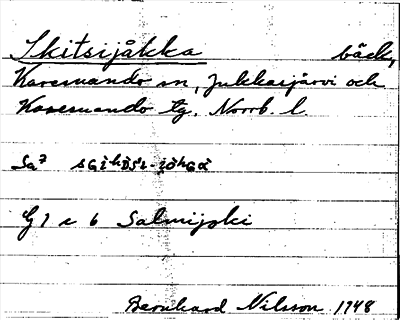 Skitsijåkka bäck,
Karesuando sn, Jukkasjärvi och
Karesuando tg, Norrb. l.
Sa⁷
G 7 e 6 Salmijoki
Bernhard Nilsson 1948